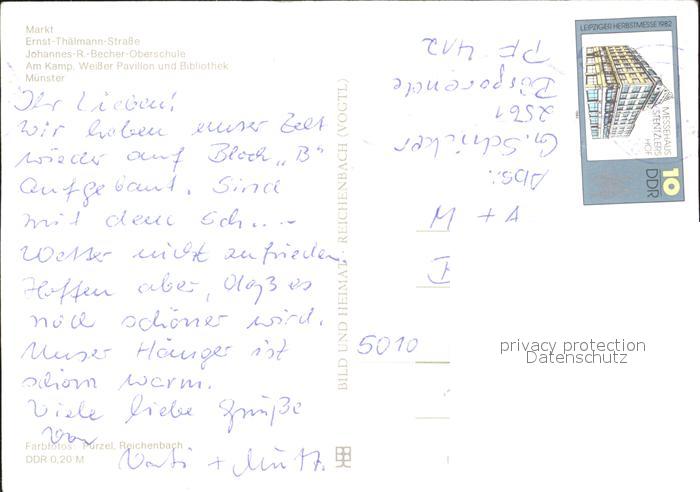 Markt
Ernst-Thälmann-Straße
Johannes-R.-Becher-Oberschule
Am Kamp, Weißer Pavillon und Bibliothek
Münster
Ihr Lieben!
Wir haben unser Zelt
wieder auf Block „B“
aufgebaut. Sind
mit dem Sch....
Wetter nicht zufrieden.
Hoffen aber, daß es
noch schöner wird.
Unser Hänger ist
schön warm.
Viele liebe Grüße
von
Vati + Mutti.
Farbfotos: Pürzel, Reichenbach
DDR 0,20 M
BILD UND HEIMAT REICHENBACH (VOGTL)
Abs.:
G. Schricker
2561
PF 412
A + M
F
5010
LEIPZIGER HERBSTMESSE 1982
MESSEHAUS
STENTZLERS
HOF
10
DDR
privacy protection
Datenschutz